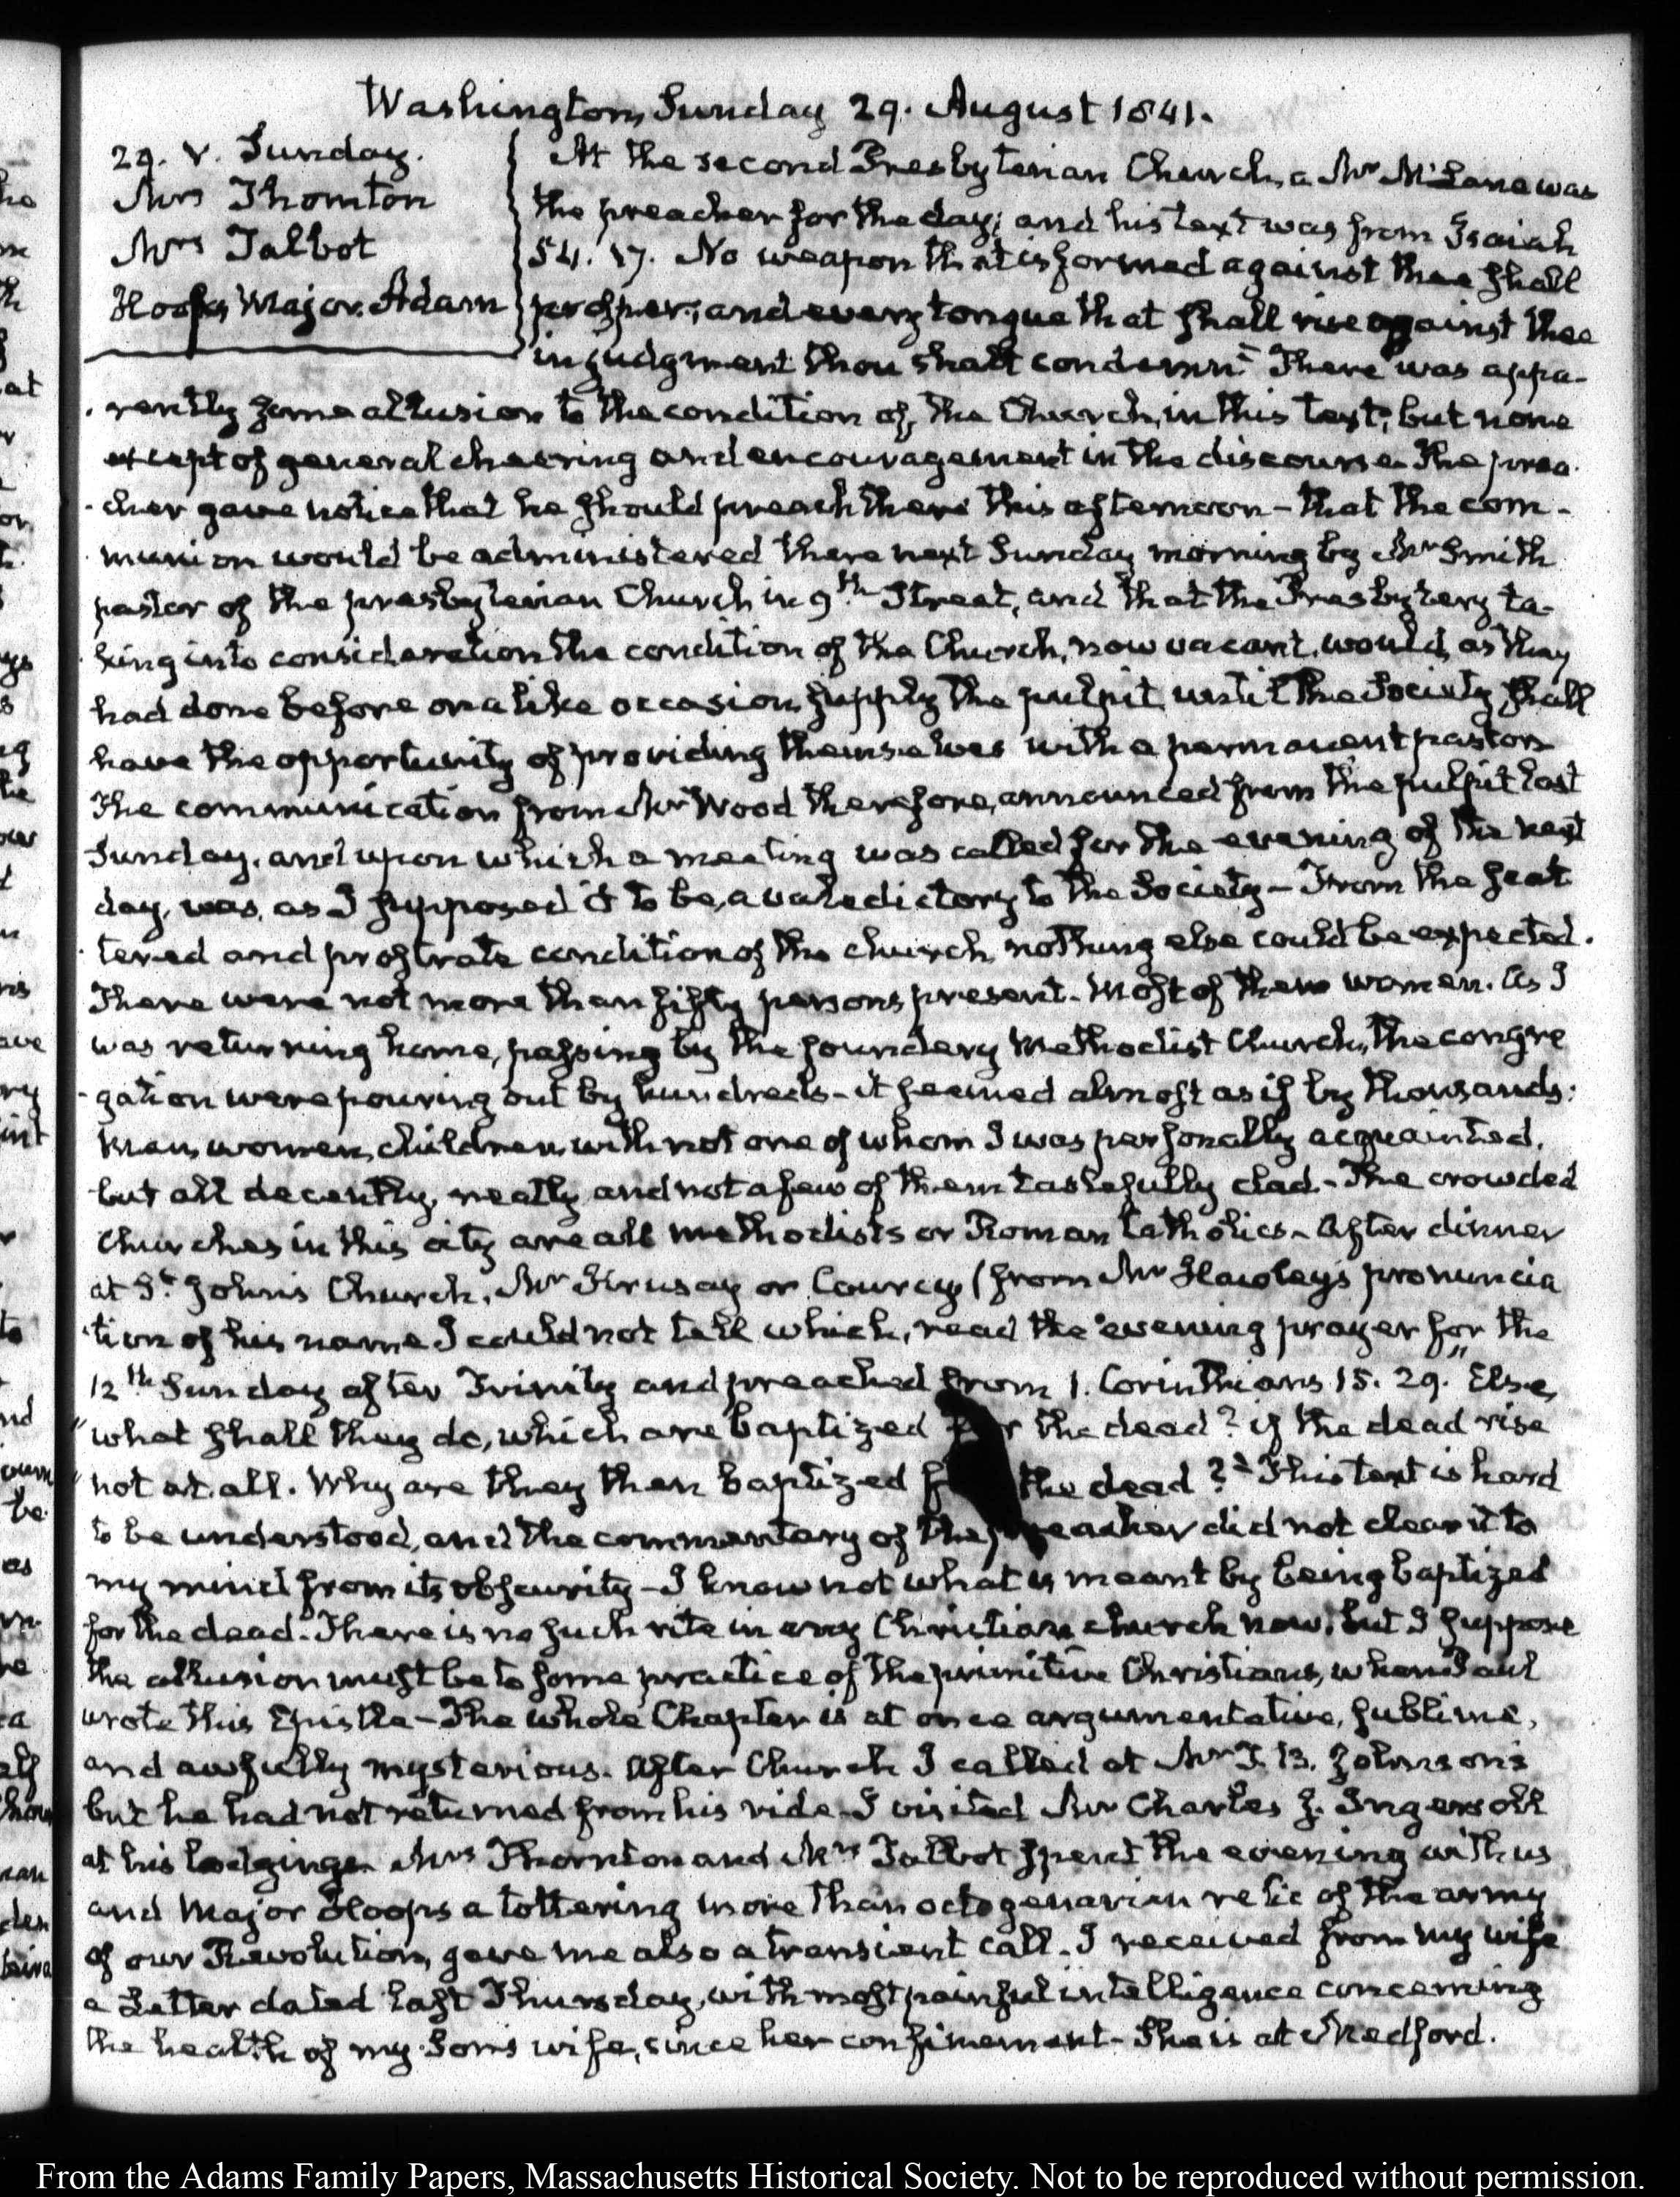 Washington, Sunday 29. August 1841.
29. V. Sunday.
Mrs Thornton
Mrs Talbot
Hoops Major. Adam
At the second Presbyterian Church, a Mr McLane was
the preacher for the day; and his text was from Isaiah
54. 17. No weapon that is formed against thee shall
prosper; and every tongue that shall rise against thee
in judgment thou shalt condemn." There was appa-
rently some allusion to the condition of the Church, in this text; but none
except of general cheering and encouragement in the discourse. The prea-
cher gave notice that he should preach there this afternoon - that the com-
munion would be administered there next Sunday morning by Mr Smith
pastor of the presbyterian Church in 9th Street, and that the Presbytery ta-
king into consideration the condition of the Church, now vacant, would, as they
had done before on a like occasion, supply the pulpit, until the Society shall
have the opportunity of providing themselves with a permanent pastor
The communication from Mr Wood therefore, announced from the pulpit last
Sunday, and upon which a meeting was called for the evening of the next
day, was, as I supposed it to be, a valedictory to the Society - From the scat
tered and prostrate condition of the church, nothing else could be expected.
There were not more than fifty persons present. Most of them women. As I
was returning home, passing by the foundery Methodist Church, the congre
gation were pouring out by hundreds - it seemed almost as if by thousands:
Men, women, children, with not one of whom I was personally acquainted,
but all decently, neatly, and not a few of them tastefully clad - The crowded
Churches in this city are all methodists or Roman Catholics - After dinner
at St. John's Church, Mr or Courcy (from Mr Hawley's pronuncia
tion of his name I could not tell which, read the evening prayer for the
12th Sunday after Trinity and preached from 1. Corinthians 15. 29. "Else,
"what shall they do, which are baptized for the dead? if the dead rise
"not at all. Why are they then baptized f the dead?" This text is hard
to be understood, and the commentary of the preacher did not clear it to
my mind from its obscurity - I know not what is meant by being baptized
for the dead. There is no such rite in any Christian church now; but I suppose
the allusion must be to some practice of the primitive Christians, when Paul
wrote this Epistle - The whole Chapter is at once argumentative, sublime,
and awfully mysterious. After Church I called at Mr J. B. Johnson's
but he had not returned from his ride - I visited Mr Charles J. Ingersoll
at his lodgings. Mrs Thornton and Mrs Talbot spent the evening with us
and Major Hoops a tottering more than octogenarian relic of the army
of our Revolution, gave me also a transient call. I received from my wife
a Letter dated last Thursday, with most painful intelligence concerning
the health of my Son's wife, since her confinement - She is at Medford.
From the Adams Family Papers, Massachusetts Historical Society. Not to be reproduced without permission.